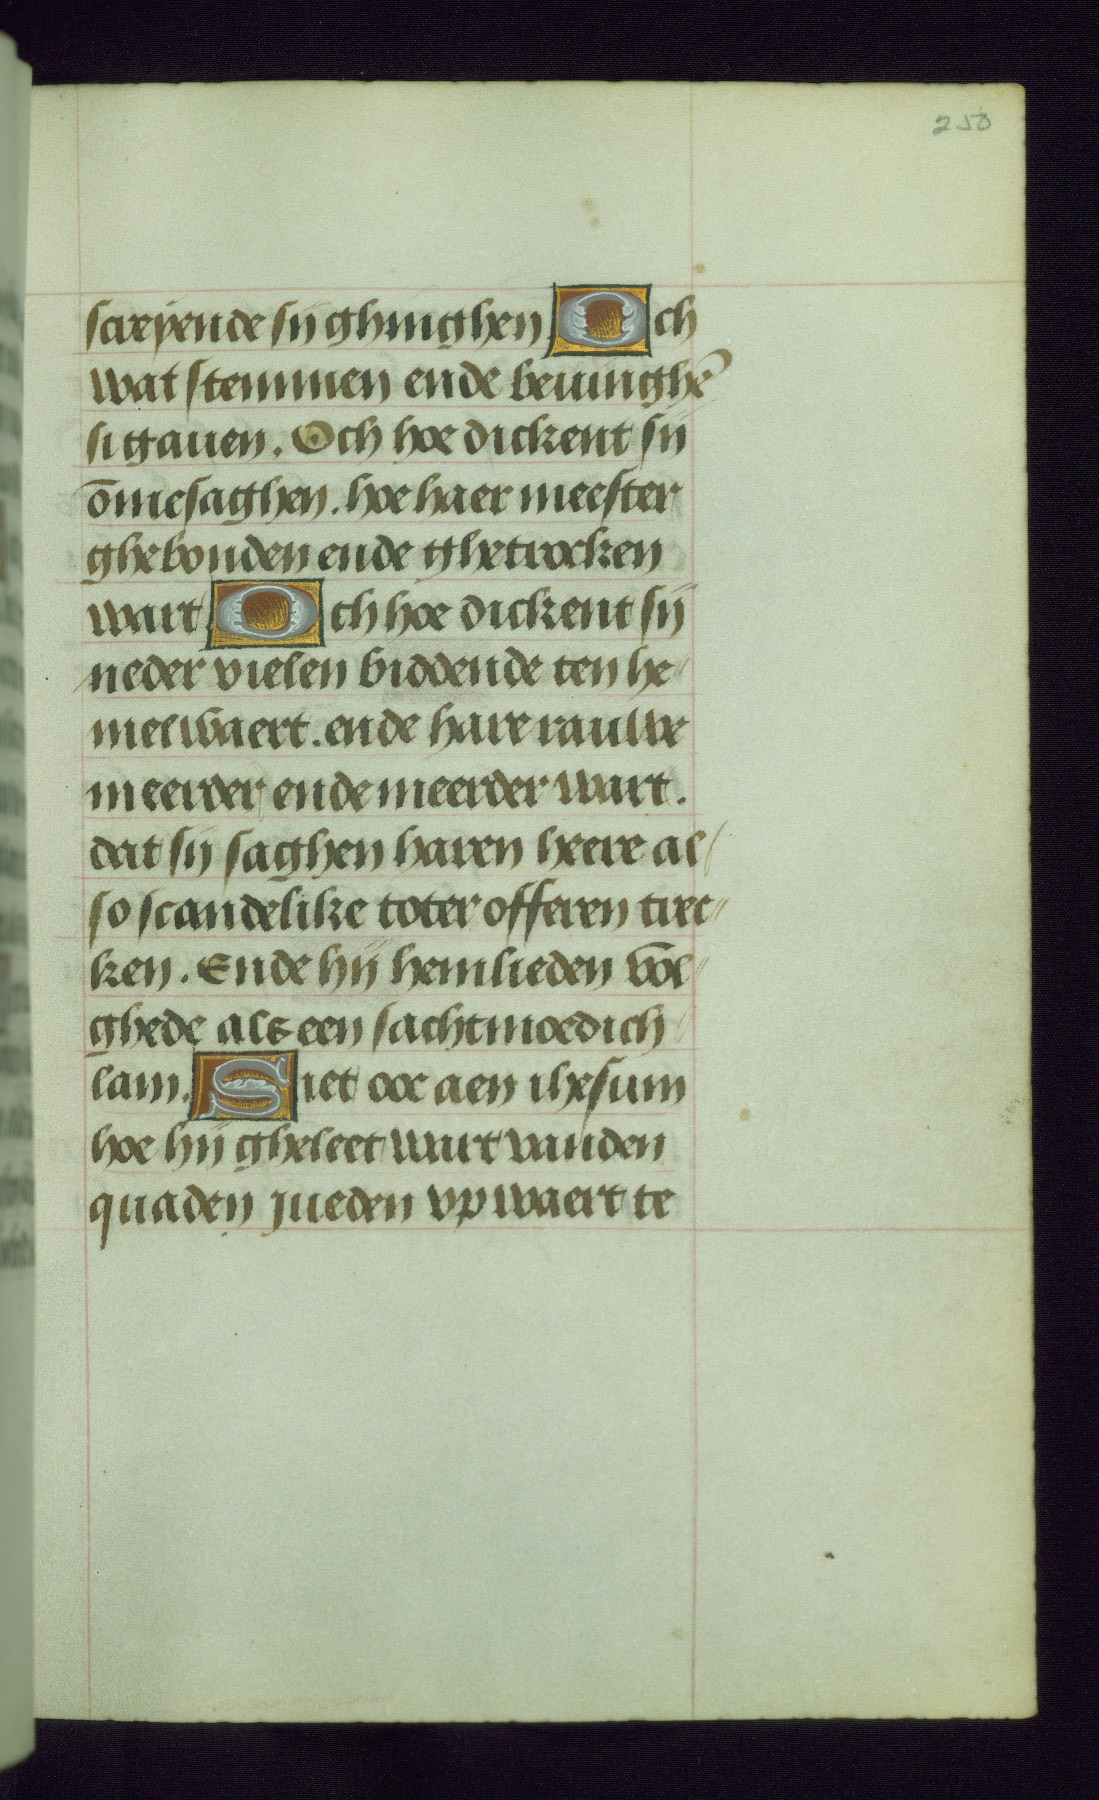 250
screyende sij ghinghen. Och
wat stemmen ende beuinghē
si gauen. Och hoe dickent sij
ōmesaghen. hoe haer meester
ghebonden ende ghetrocken
wart. Och hoe dickent sij
neder vielen biddende ten he
melwaert. ende hare rauwe
meerder ende meerder wart.
dat sij saghen haren heere al
so scandelike toter offeren trec
ken. Ende hij hemlieden vol
ghede als een sachtmoedich
lam. Siet ooc aen ihesum
hoe hij gheleet wart vanden
quaden jueden vpwaert te